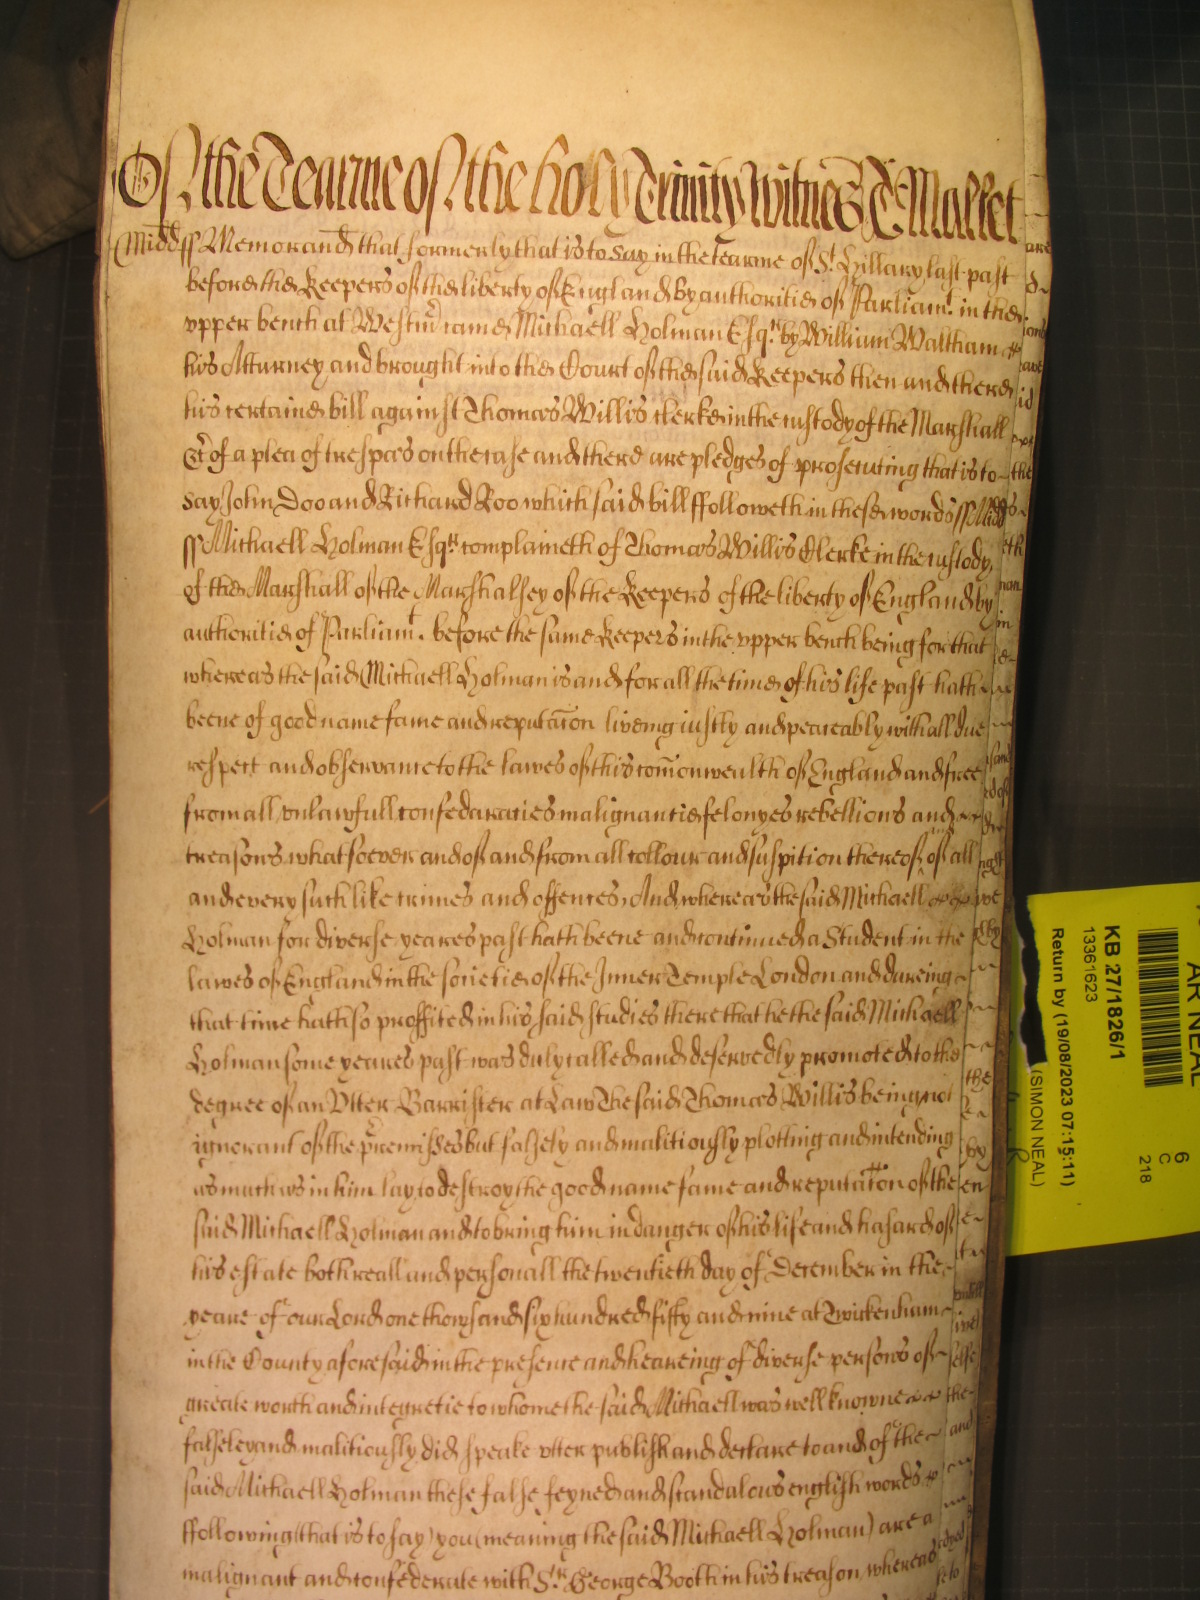 Of the Tearme of the holy Trinity Witnes T Mallet
Midds ss Memorand that formerly that is to say in the tearme of St. Hillary last past
before the Keepers of the liberty of England by authoritie of Parliamt. in the
vpper bench at Westm came Michaell Holman Esqr. by William Waltham
his Atturney and brought into the Court of the said Keepers then and there
his certaine bill against Thomas Willis clerke in the custody of the Marshall
&c of a plea of trespas on the case and there are pledges of prosecuting that is to
say John Doo and Richard Roo which said bill ffolloweth in these words ss Midds
ss Michaell Holman Esqr. complaineth of Thomas Willis Clerke in the custody
of the Marshall of the Marshalsey of the Keepers of the liberty of England by
authoritie of Parliamt. before the same Keepers in the vpper bench being for that
whereas the said Michaell Holman is and for all the time of his life past hath
beene of good name fame and reputacon liveing iustly and peaceably with all due
respect and observance to the lawes of this comonwealth of England and free
from all vnlawfull confedaracies malignancie felonyes rebellions and
treasons whatsoever and of and from all collour and suspition thereof of all
and every such like crimes and offences, And whereas the said Michaell
Holman for diverse yeares past hath beene and continued a Student in the
lawes of England in the societie of the Inner Temple London and dureing
that time hath so proffited in his said studies there that he the said Michaell
Holman some yeares past was duly called and deservedly promoted to the
degree of an Vtter Barrister at Law The said Thomas Willis being not
ignorant of the premisses but falsely and malitiously plotting and intending
as much as in him lay to destroy the good name fame and reputacon of the
said Michaell Holman and to bring him in danger of his life and hasard of
his estate both reall and personall the twentieth day of December in the
yeare of our Lord one thowsand six hundred fifty and nine at Twickenham
in the County aforesaid in the presence and heareing of diverse persons of
greate worth and integretie to whome the said Michaell was well knowne
falseley and malitiously did speake vtter publish and declare to and of the
said Michaell Holman these false feyned and scandalous english words
ffollowing (that is to say) you (meaning the said Michaell Holman) are a
malignant and confederate with Sr. George Booth in his treason whereas
AR NEAL
KB 27/1826/1
13361623
Return by (19/08/2023 07:15:11)
(SIMON NEAL)
6
C
218